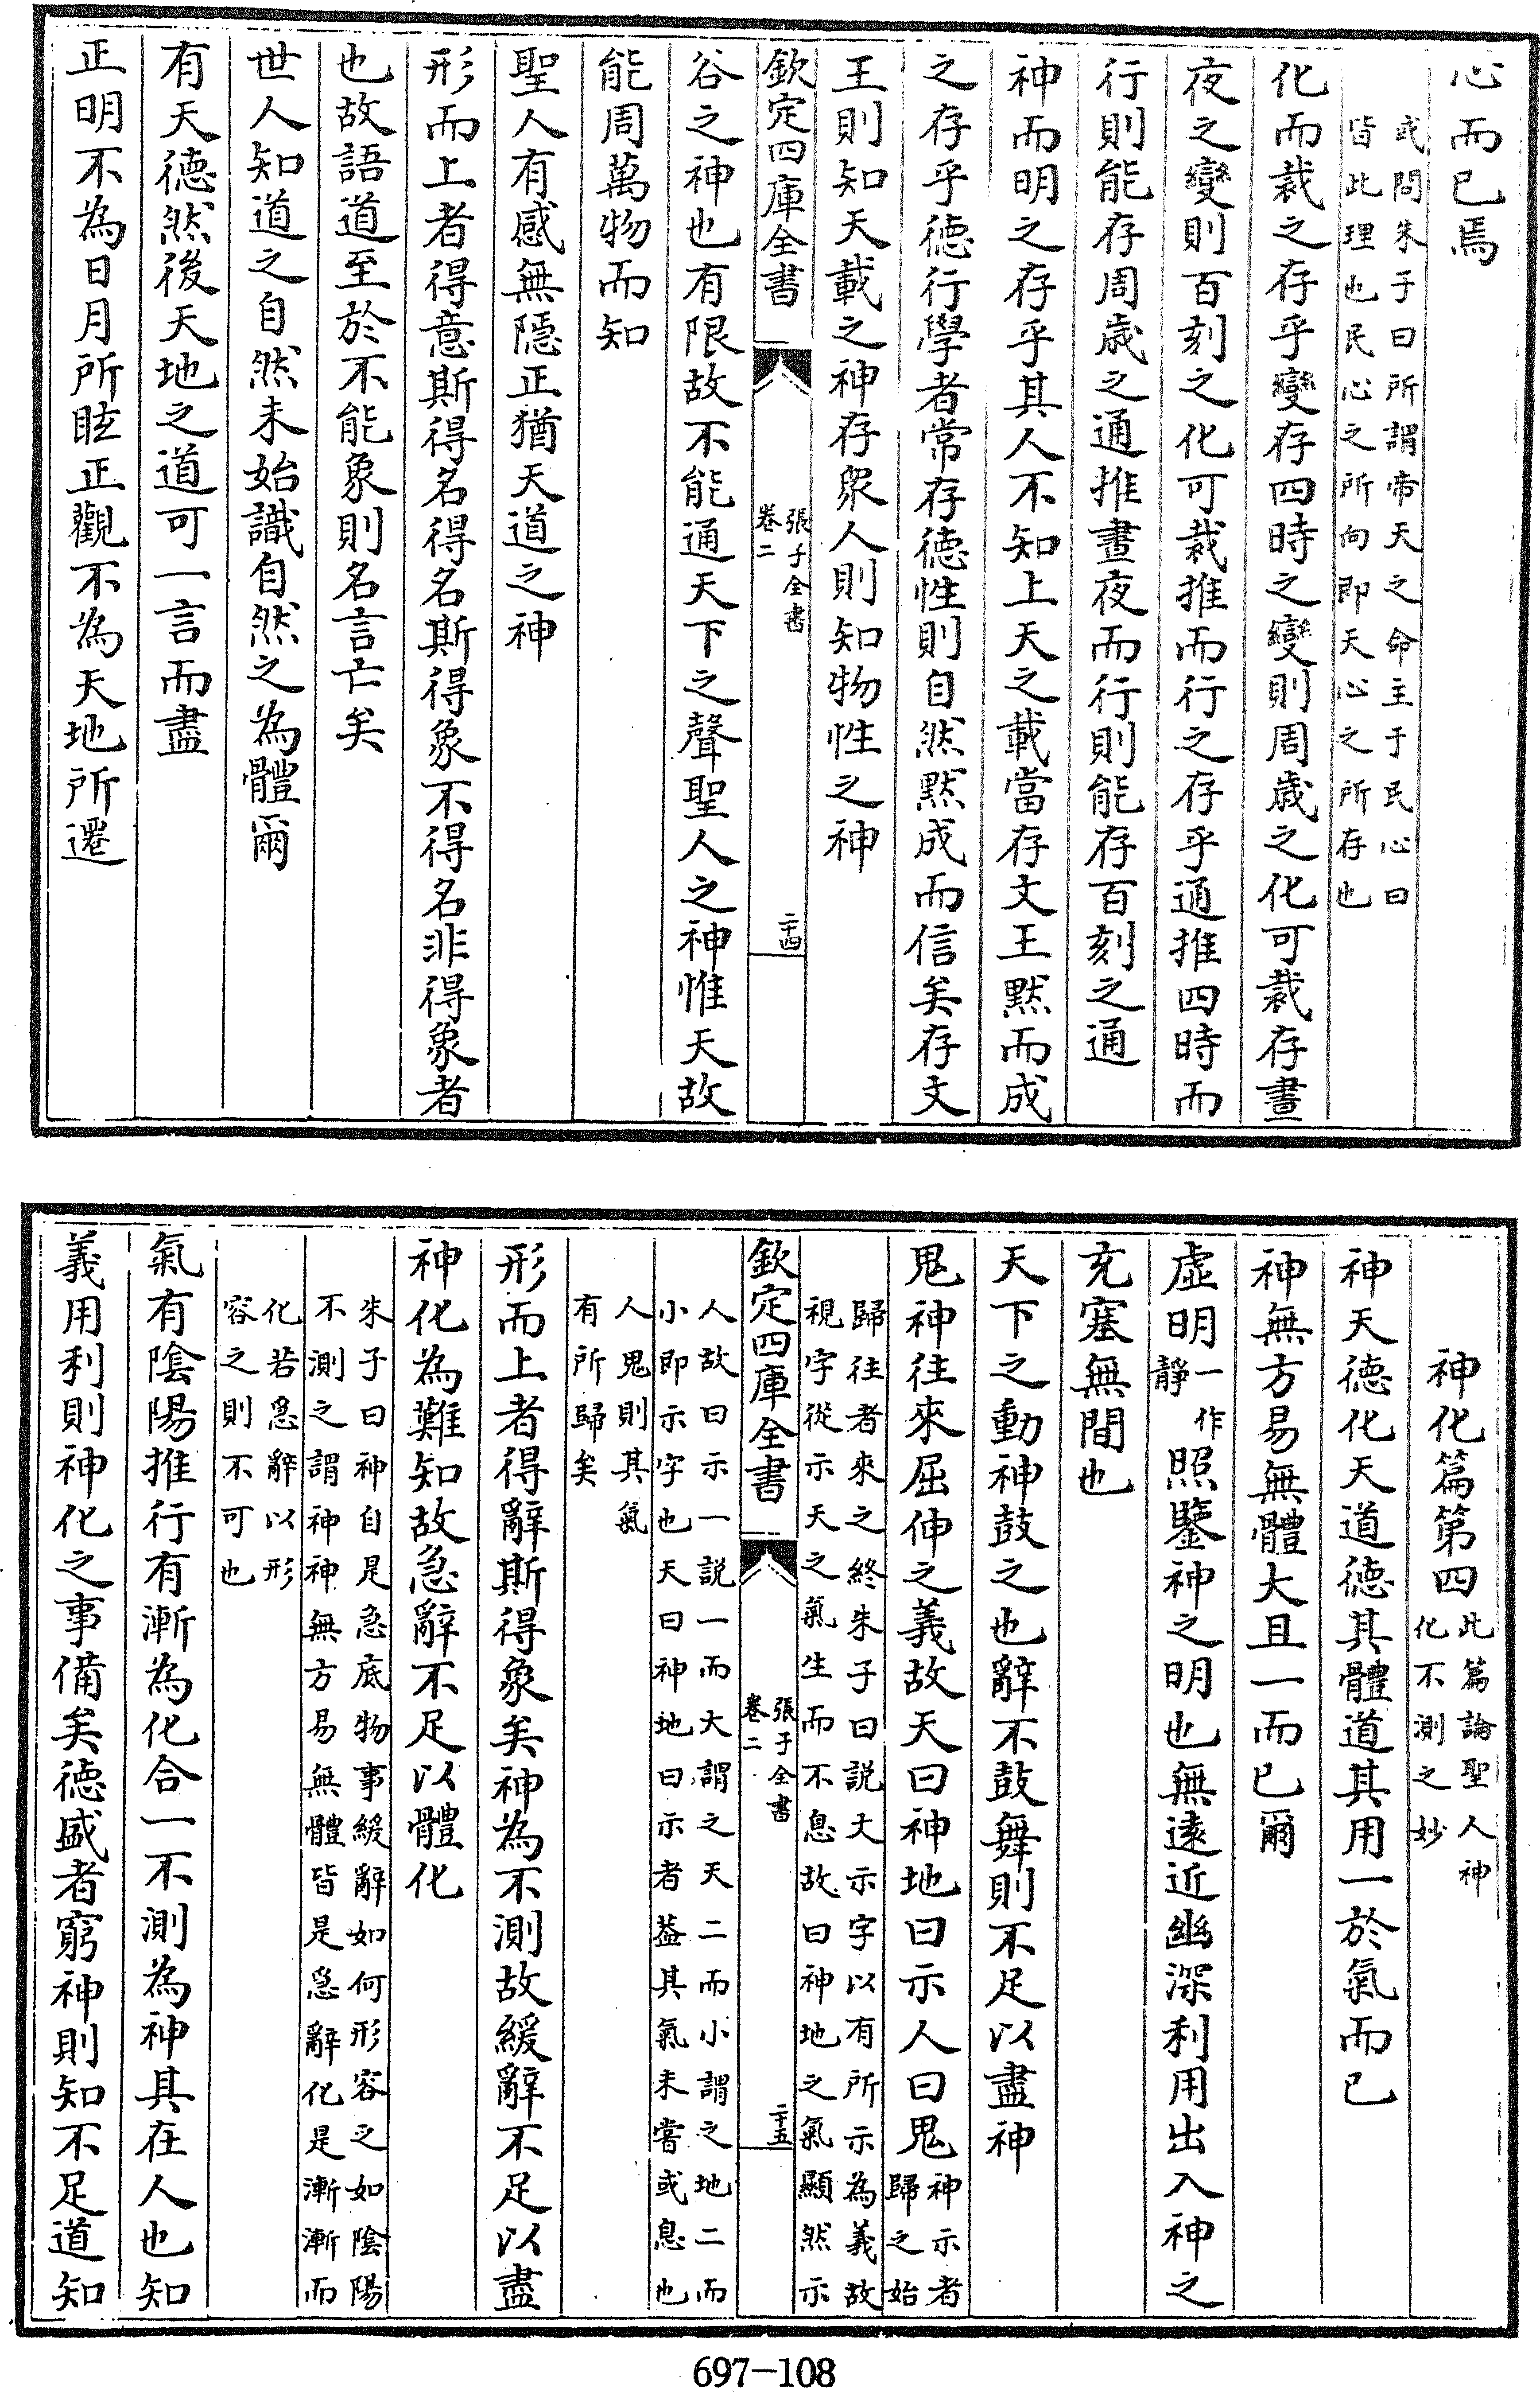 心而已焉
或問朱子曰所謂帝天之命主于民心曰
皆此理也民心之所向即天心之所存也
化而裁之存乎變存四時之變則周歲之化可裁存晝
夜之變則百刻之化可裁推而行之存乎通推四時而
行則能存周歲之通推晝夜而行則能存百刻之通
神而明之存乎其人不知上天之載當存文王默而成
之存乎德行學者常存德性則自然默成而信矣存文
王則知天載之神存衆人則知物性之神
欽定四庫全書
張子全書
卷二
二十四
谷之神也有限故不能通天下之聲聖人之神惟天故
能周萬物而知
聖人有感無隱正猶天道之神
形而上者得意斯得名得名斯得象不得名非得象者
也故語道至於不能象則名言亡矣
世人知道之自然未始識自然之為體爾
有天德然後天地之道可一言而盡
正明不為日月所眩正觀不為天地所遷
神化篇第四
此篇論聖人神
化不測之妙
神天德化天道德其體道其用一於氣而已
神無方易無體大且一而已爾
虛明一作靜照鑒神之明也無遠近幽深利用出入神之
充塞無間也
天下之動神鼓之也辭不鼓舞則不足以盡神
鬼神往來屈伸之義故天曰神地曰示人曰鬼
神示者
歸之始
歸往者來之終朱子曰說文示字以有所示為義故
視字從示天之氣生而不息故曰神地之氣顯然示
欽定四庫全書
張子全書
卷二
二十五
人故曰示一說一而大謂之天二而小謂之地二而
小即示字也天曰神地曰示者葢其氣未嘗或息也
人鬼則其氣
有所歸矣
形而上者得辭斯得象矣神為不測故緩辭不足以盡
神化為難知故急辭不足以體化
朱子曰神自是急底物事緩辭如何形容之如陰陽
不測之謂神神無方易無體皆是急辭化是漸漸而
化若急辭以形
容之則不可也
氣有陰陽推行有漸為化合一不測為神其在人也知
義用利則神化之事備矣德盛者窮神則知不足道知
697-108